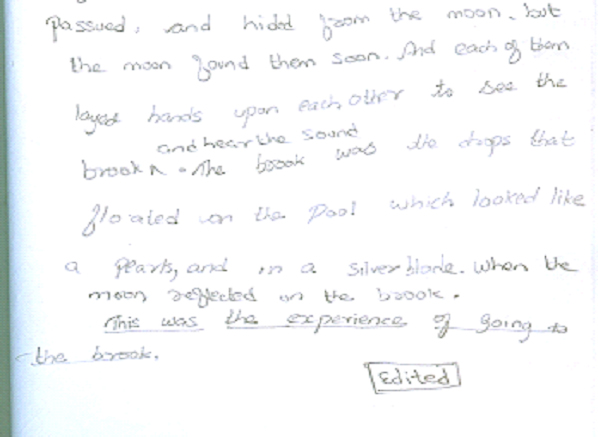 Passued, and hided from the moon. but
the moon found them soon. And each of them
layed hands upon each other to see the
and hear the sound
brook ^. The brook was the drops that
floated on the pool which looked like
a pearls, and in a silver blade. When the
moon reflected on the brook.
This was the experience of going to
the brook.
Edited